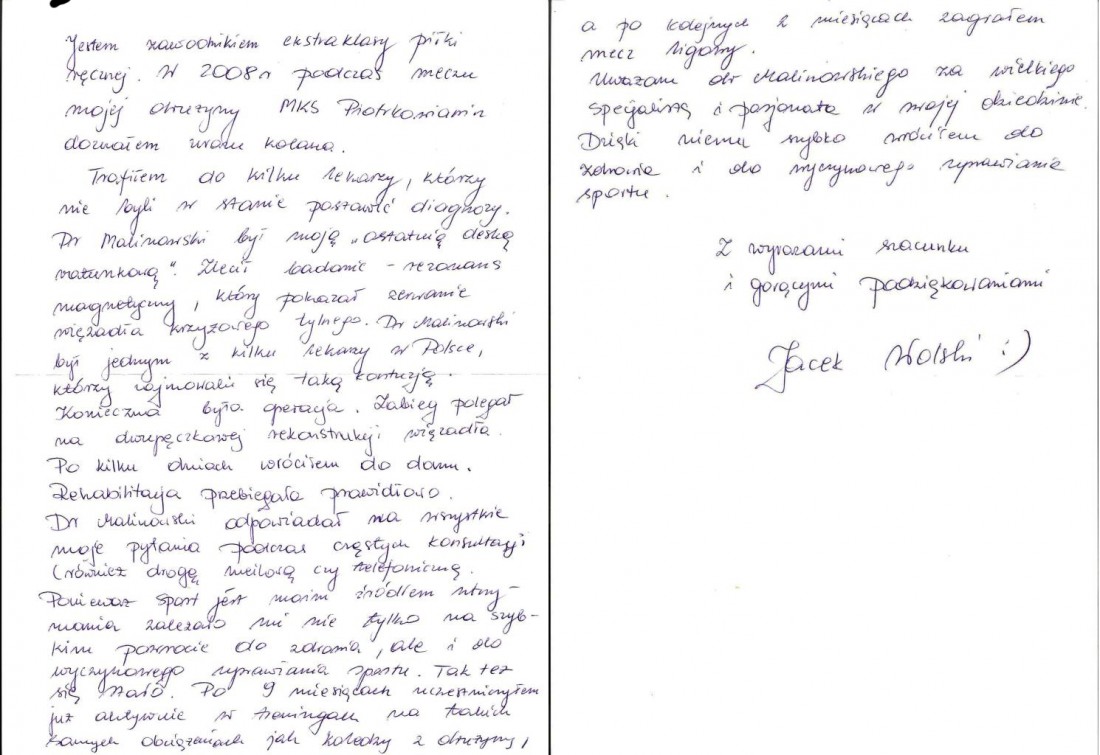 Jestem zawodnikiem ekstraklasy piłki
ręcznej. W 2008 r podczas meczu
mojej drużyny MKS Piotrkowianin
doznałem urazu kolana.
Trafiłem do kilku lekarzy, którzy
nie byli w stanie postawić diagnozy.
Dr Malinowski był moją „ostatnią deską
ratunkową". Zlecił badanie - rezonans
magnetyczny, który pokazał zerwanie
więzadła krzyżowego tylnego. Dr Malinowski
był jednym z kilku lekarzy w Polsce,
którzy zajmowali się taką kontuzją.
Konieczna była operacja. Zabieg polegał
na dwupęczkowej rekonstrukcji więzadła.
Po kilku dniach wróciłem do domu.
Rehabilitacja przebiegała prawidłowo.
Dr Malinowski odpowiadał na wszystkie
moje pytania podczas częstych konsultacji
(również drogą meilową czy telefoniczną.
Ponieważ sport jest moim źródłem utrzy-
mania zależało mi nie tylko na szyb-
kim powrocie do zdrowia, ale i do
wyczynowego uprawiania sportu. Tak też
się stało. Po 9 miesiącach uczestniczyłem
już aktywnie w treningach na takich
samych obciążeniach jak koledzy z drużyny,
a po kolejnych 2 miesiącach zagrałem
mecz ligowy.
Uważam dr Malinowskiego za wielkiego
specjalistę i pasjonata w swojej dziedzinie.
Dzięki niemu szybko wróciłem do
zdrowia i do wyczynowego uprawiania
sportu.
Z wyrazami szacunku
i gorącymi podziękowaniami
Jacek Wolski :)